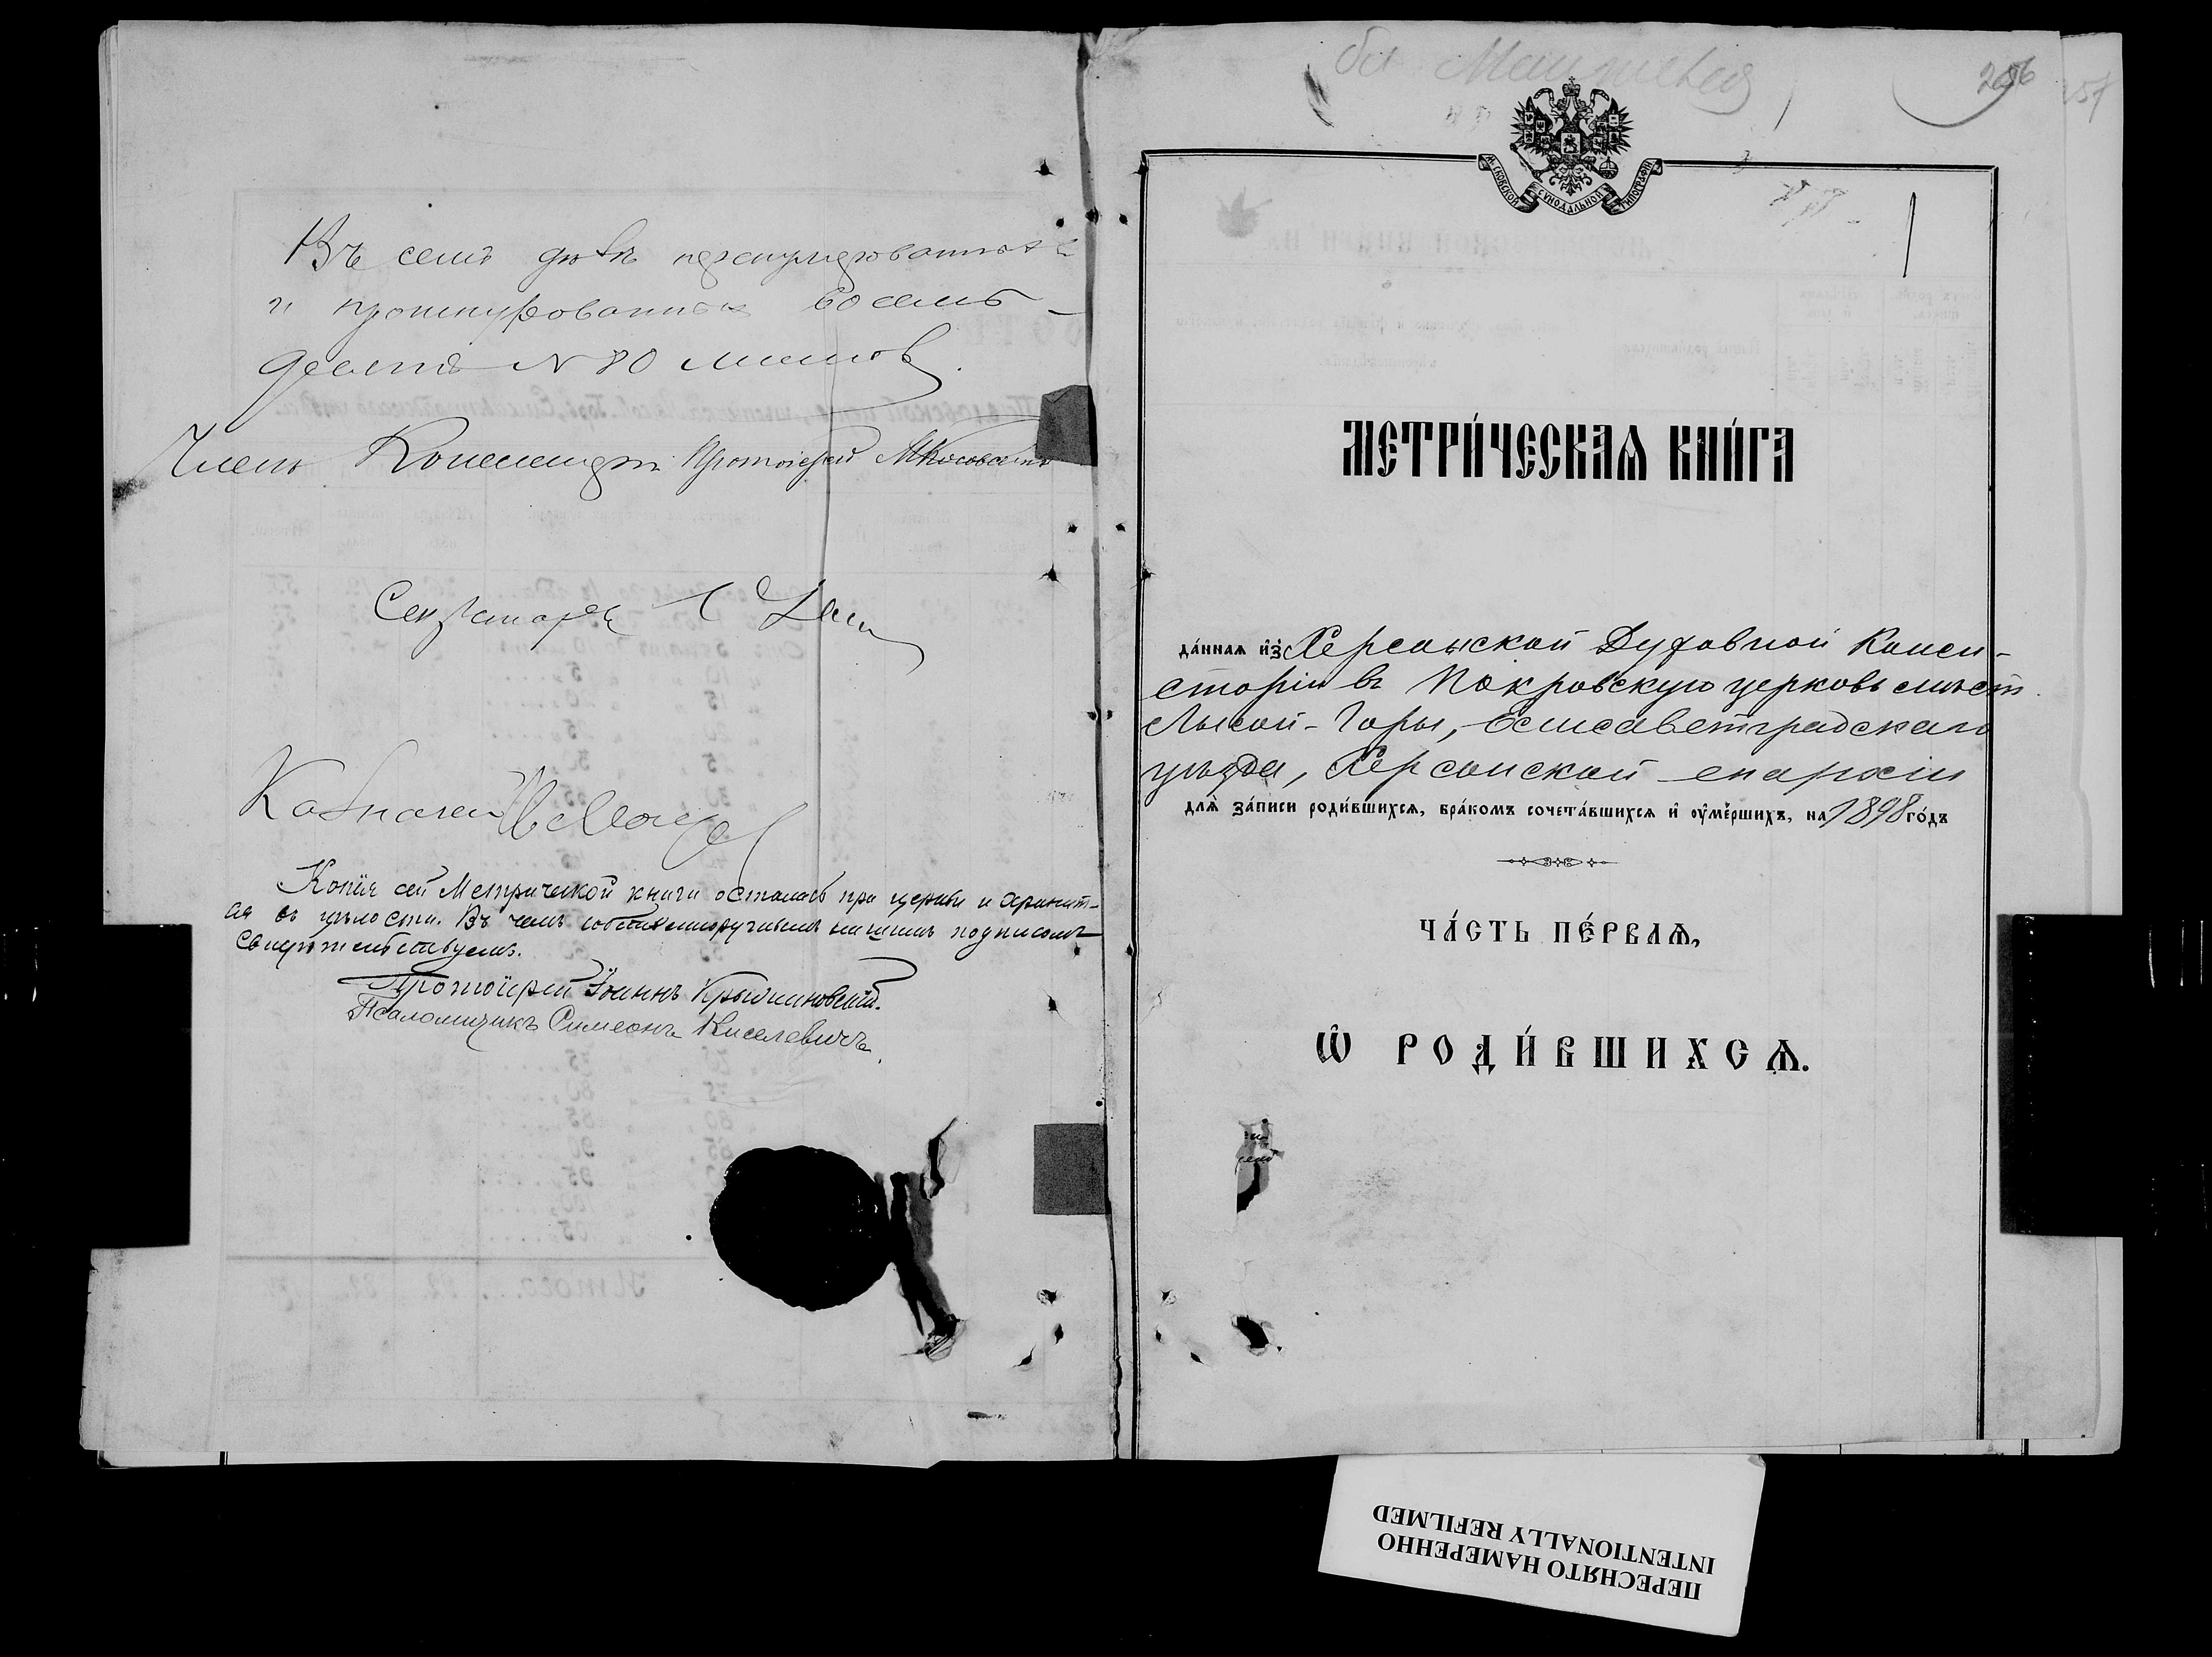 Въ семъ дѣлѣ перенумерованныхъ
и прошнурованныхъ восемь-
десятъ № 80 листовъ.
Членъ Консисторіи Протоіерей
Секретарь
Казначей
Копія сей Метрической книги осталась при церкви и хранит-
ся въ цѣлости. Въ чемъ собственноручнымъ нашимъ подписомъ
свидѣтельствуемъ.
Протоіерей Іоаннъ Крыжановскій.
Псаломщикъ Симеонъ Киселевичъ.
256
257
1
МОСКОВСКОЙ СѴНОДАЛЬНОЙ ТИПОГРАФІИ
МЕТРИ́ЧЕСКАѦ КНИ́ГА
да́ннаѧ и҆з̾ Херсонской Духовной Конси-
сторіи въ Покровскую церковь мѣст.
Лысой-Горы, Елисаветградскаго
уѣзда, Херсонской епархіи
длѧ̀ за́писи роди́вшихсѧ, бра́комъ сочета́вшихсѧ и҆ ᲂу҆ме́ршихъ, на 1898 го́дъ
ЧА́СТЬ ПЕ́РВАѦ,
Ѡ҆ РОДИ́ВШИХСѦ.
ПЕРЕСНЯТО НАМЕРЕННО
INTENTIONALLY REFILMED